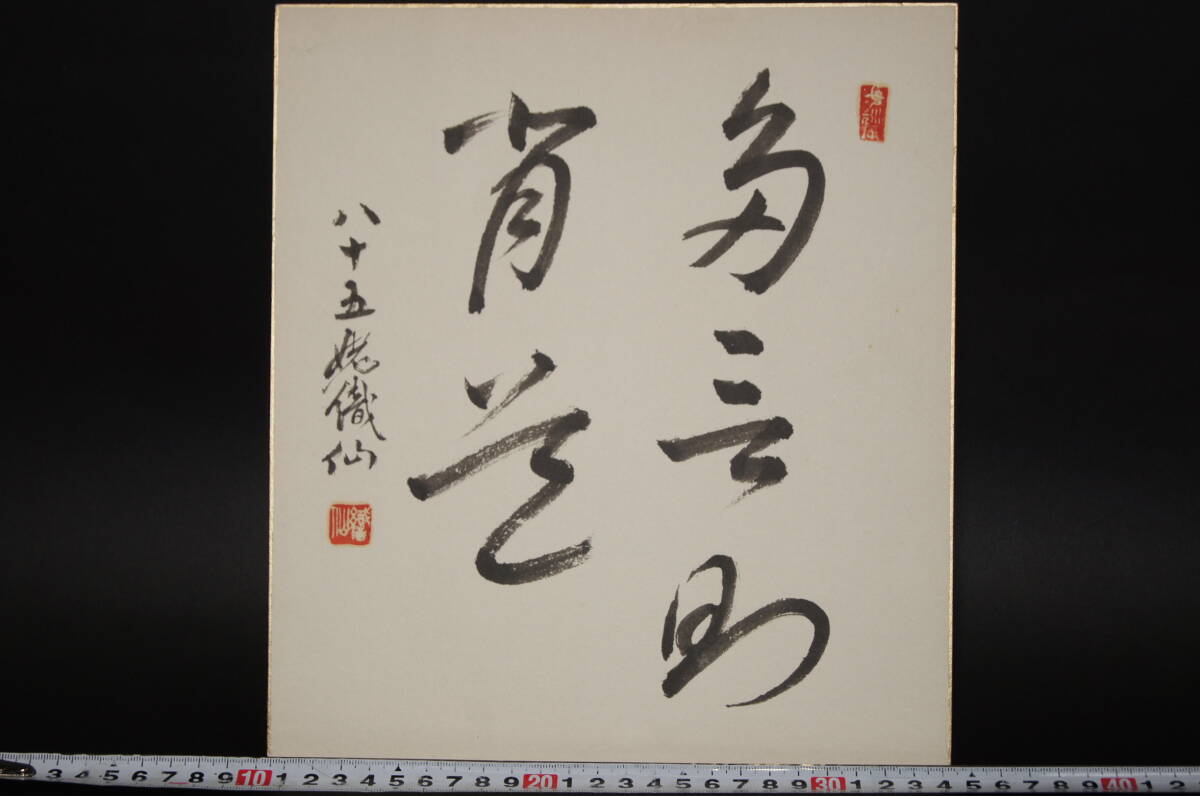 多言則
背道
八十五姥織仙
織仙
3 4 5 6 7 8 9 10 1 2 3 4 5 6 7 8 9 20 1 2 3 4 5 6 7 8 9 30 1 2 3 4 5 6 7 8 9 40 1 2